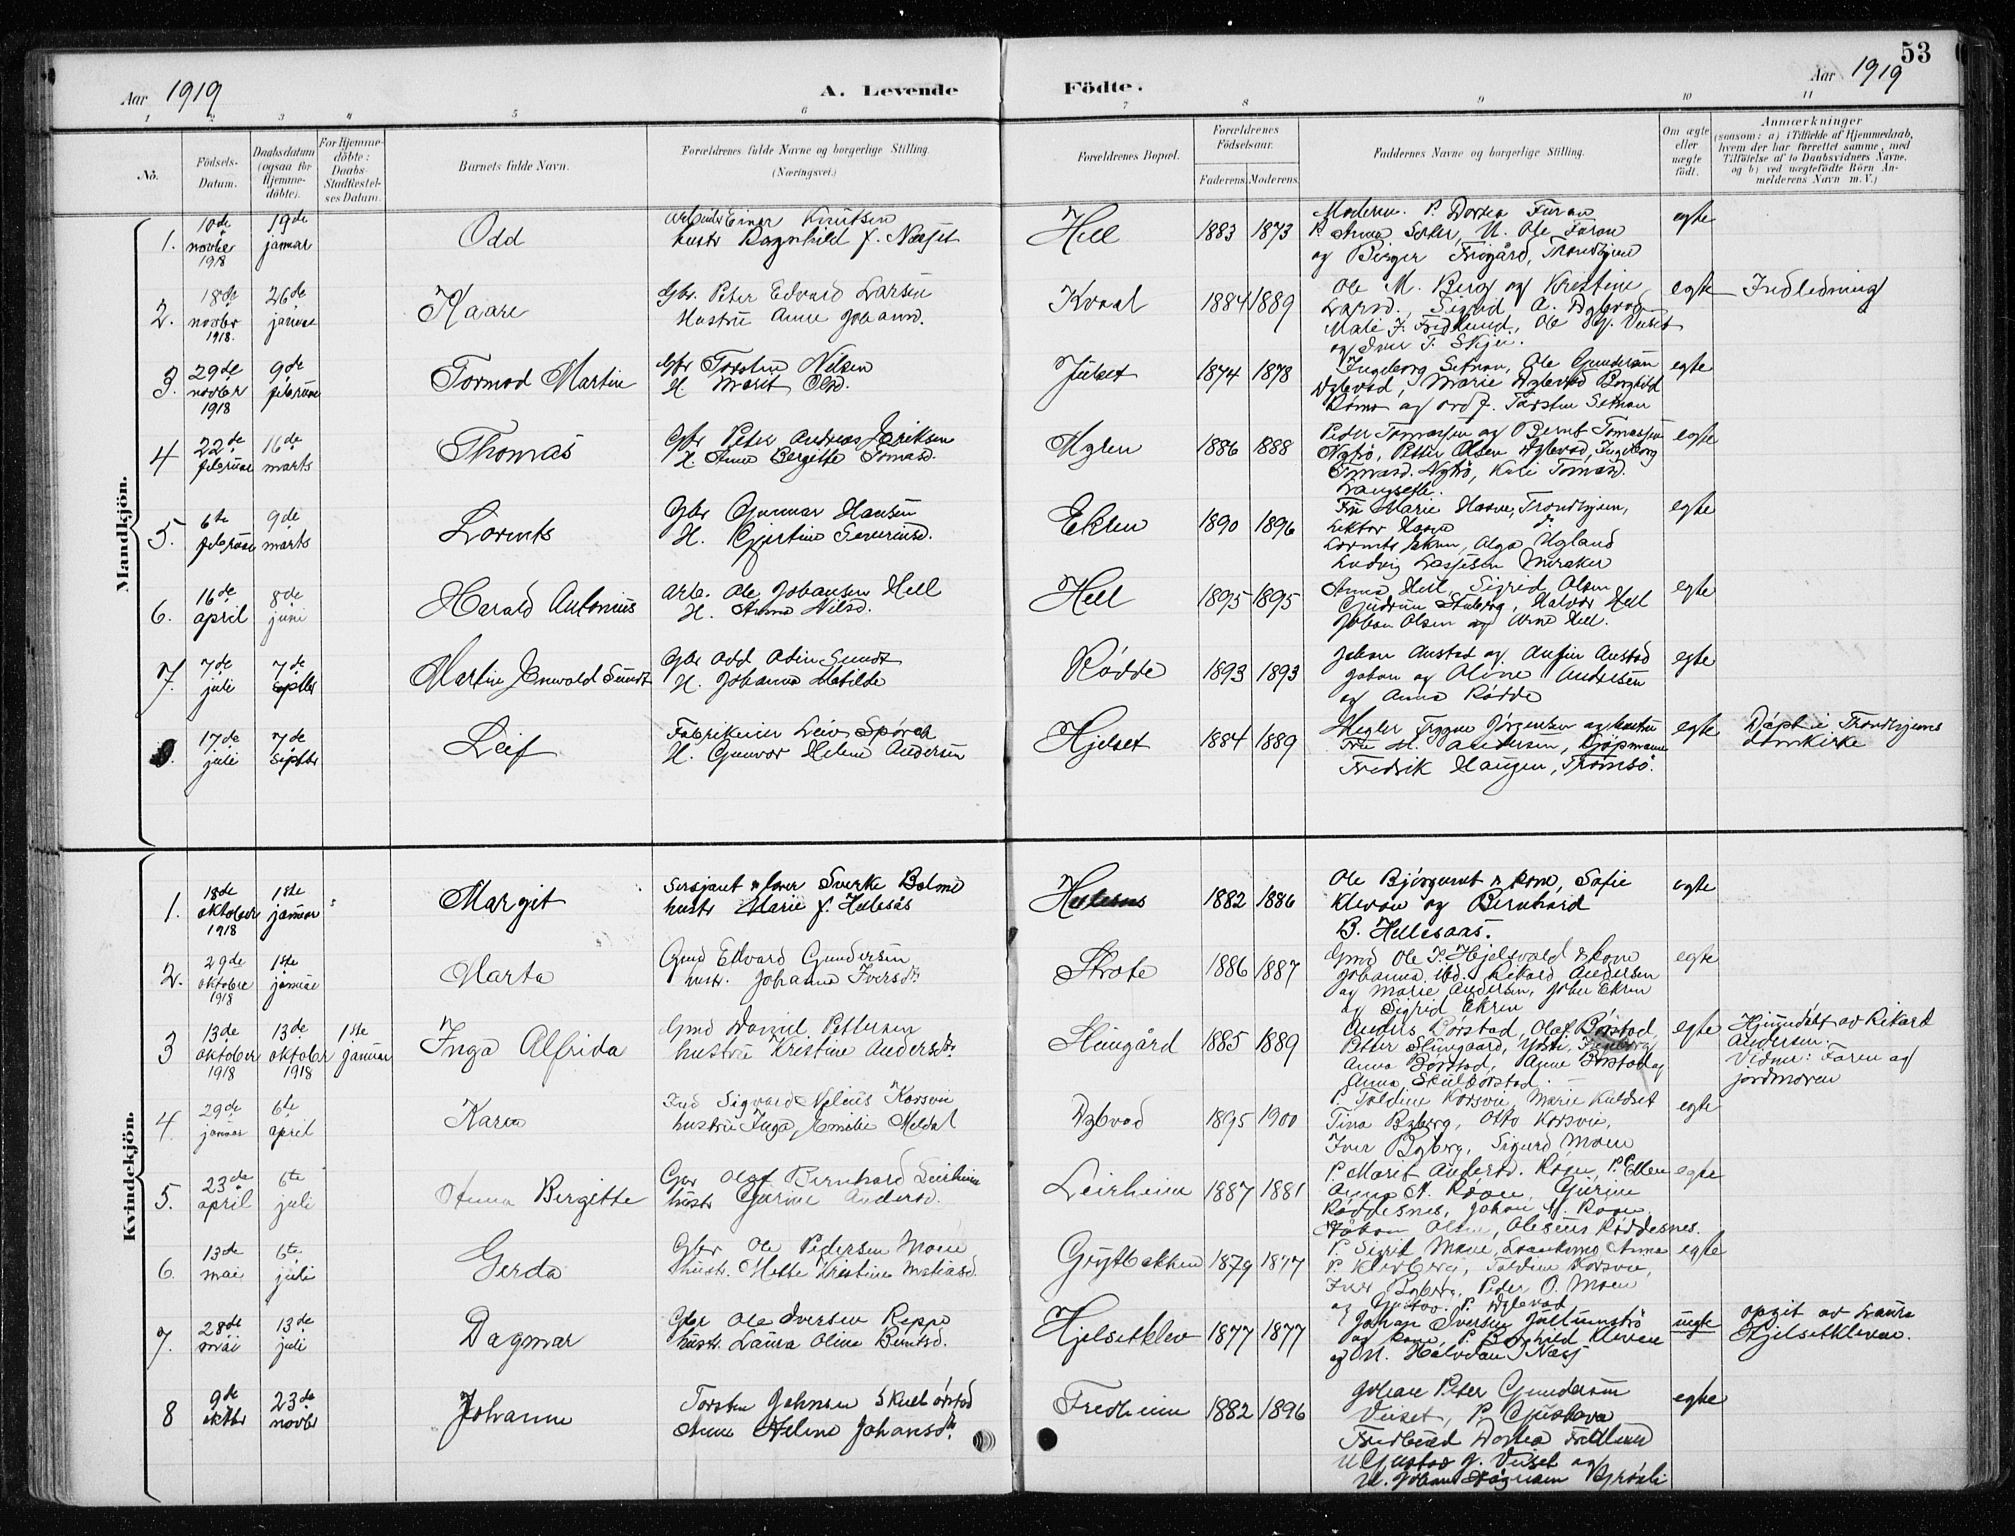 53
Aar 1919
A. Levende Födte.
Aar 1919
1 2 3 4 5 6 7 8 9 10 11
No.
Födsels-Datum.
Daabsdatum (ogsaa för Hjemmedöbte).
For Hjemmedöbte: Daabs Stadfæstelses Datum.
Barnets fulde Navn.
Forældrenes fulde Navne og borgerlige Stilling.
(Næringsvei.)
Forældrenes Bopæl.
Forældrenes Födselsaar.
Faderens. Moderens.
Faddernes Navne og borgerlige Stilling.
Om ægte eller uægte födt.
Anmærkninger
(saasom: a) i Tilfælde af Hjemmedaab,
hvem der har forrettet samme, med
Tilföielse af to Daabsvidners Navne,
og b) ved uægtefödte Börn Anmelderens Navn m. V.)
Mandkjön.
1. 10de novbr 1918 19de januar Odd Einar Knutsen
hustr Ragnhild f. Næsset Hell 1883 1873 Moderen. P. Dortea Faran
P. Anna Seter, U. Ole Faran
og Birger Trøgård, Trondhjem egte
2. 18de novbr 1918. 26de januar Kaare Gbr. Peter Edvard Larsen
Hustru Anne Johansd. Kvaal 1884 1889 Ole M. Berg og Kristine
Larsd., Sigrid A. Dybvad
Mali J. Fredlund, Ole G. Viiset
og Iver T. Skjei. egte Indledning
3. 29de novbr 1918 9de februar Tormod Martin Gbr Torsten Nilsen
H. Marit Olsd. Julset 1874 1878 Ingeborg Setnan, Ole Gundersen
Dybvad, Marie Dybvad Borghild
Rømo og ordf. Torsten Setnan egte
4 22de februar 16de marts Thomas Gbr Peter Andreas Eriksen
H. Anne Bergitte Tomasd. Myren 1886 1888 Peder Tomassen og Bernt Tomassen
Nytrø, Petter Olsen Dybvad, Ingeborg
Tomasd. Nytrø, Kari Tomasd.
Langseth. egte
5. 6te februar 9de marts Lorents Gbr Gunnar Hansen
H. Kjerstine Severinsd. Ekren 1890 1896 Fru Marie Hasve, Trondhjem,
Lektor Hasve
Lorents Ekren, Olga Ugland
Ludvig Lassesen Meraker egte
6. 16de april 8de juni Harald Antonius Arb. Ole Johansen Hell
H. Anna Nilsd. Hell 1895 1895 Anna Hell, Sigrid Olsen
Gudrun Stuberg, Halvor Hell
Johan Olsen og Arne Hell. egte
7. 7de juli 7de septbr Martin Enevald Sundt Gbr Odd Odin Sundt
H. Johanna Matilde Rødde 1893 1893 Johan Austad og Anfin Austad
Johan og Oline Andersen
og Anna Rødde egte
17de juli 7de septbr Leif Fabrikeier Leiv Spørck
H. Gunvor Helene Andersen Hjelset 1884 1889 Megler Trygve Jörgensen og hustru
Fru M. Andersen, Kjøpmann
Fredrik Haugen, Tromsø. egte Døpt i Trondhjems
domkirke
Kvindekjön.
1. 18de oktober 1918 1ste januar Margit Sersjant Sverke Bolme
hustr Marie f. Hellesås 1882 1886 Ole Bjørgumt & kone, Sofie
Kleven og Bernhard
B. Hellesaas. egte
2. 29de oktobre 1918 1ste januar Marta Gmd Edvard Gundersen
hustr. Johanna Iversdtr Skrote 1886 1887 Gmd Ole P. Hjelsvold & kone
Johanna ibd. Rikard Andersen
og Marie Andersen, Johan Ekren
og Sigrid Ekren egte
3 13de oktober 1918 13de oktober 1918 1ste januar Inga Alfrida Gmd Daniel Pettersen
hustru Kristine Andersdtr Skeingård 1885 1889 Anders Børstad, Olaf Børstad
Peter
Anna Børstad, Anne Børstad og
Anna Skulbørstad. egte Hjemdøbt av Rikard
Andersen.
Vidner: Faren og
jordmoren
4. 29de januar 6te april Karen Sigvard Nelius Korsvei
hustru Inga Emilie Meldal Dybvad 1895 1900 P. Toldine Korsvei, Marie Kuldset
Tina Byberg, Otto Korsvei,
Iver Byberg, Sigurd Moen egte
5. 23de april 6te juli Anna Birgitte Gbr Olaf Bernhard Leirheim
hustr Gurine Andersd. Leirheim 1887 1881 P. Marit Andersd. Roen, P. Ellen
Anna M. Roen, Gurine
Røddesnes, Johan M. Roen,
Johan Olsen, Olesius Røddesnes. egte
6 13de mai 6te juli Gerda Gbr Ole Pedersen Moen
hustr. Mette Kristine Matiasd. Grytbakken 1879 1877 P. Sigrid Moen, Anna
P. Kleiberg, Toldine Korsvei,
Iver Byberg, Peder O. Moen
og Gustav P. Dybvad egte
7. 28de mai 13de juli Dagmar Gbr Ole Iversen Reppe
hustr. Laura Oline Berntsd. Hjelsetklev 1877 1877 Johan Iversen Jullumstrø
og kone, P. Borghild Kleven
og M. Halvdan Næss uegte opgit av Laura
Hjelsetkleven.
8 9de oktbr 23de novbr Johanne Torsten Johnsen Skulbørstad
Anne Heline Johansdtr. Fredheim 1882 1896 Johan Peter Gundersen
Viiset, P. Gustava
Fredlund Dortea Fredlund
U Gustav J. Viiset og
U. Johan Bjørkli egte